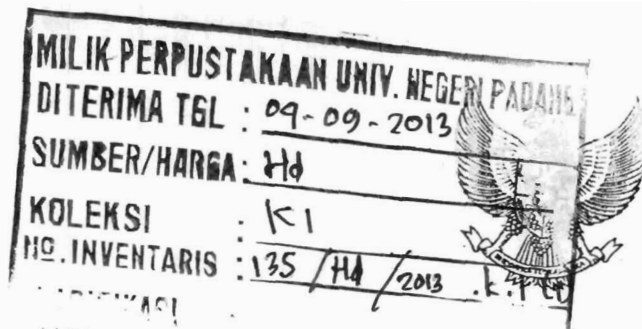 MILIK PERPUSTAKAAN UNIV. NEGERI PADANG
DITERIMA TGL : 09-09-2013
SUMBER/HARGA : Hd
KOLEKSI : KI
NO. INVENTARIS : 135 / Hd / 2013